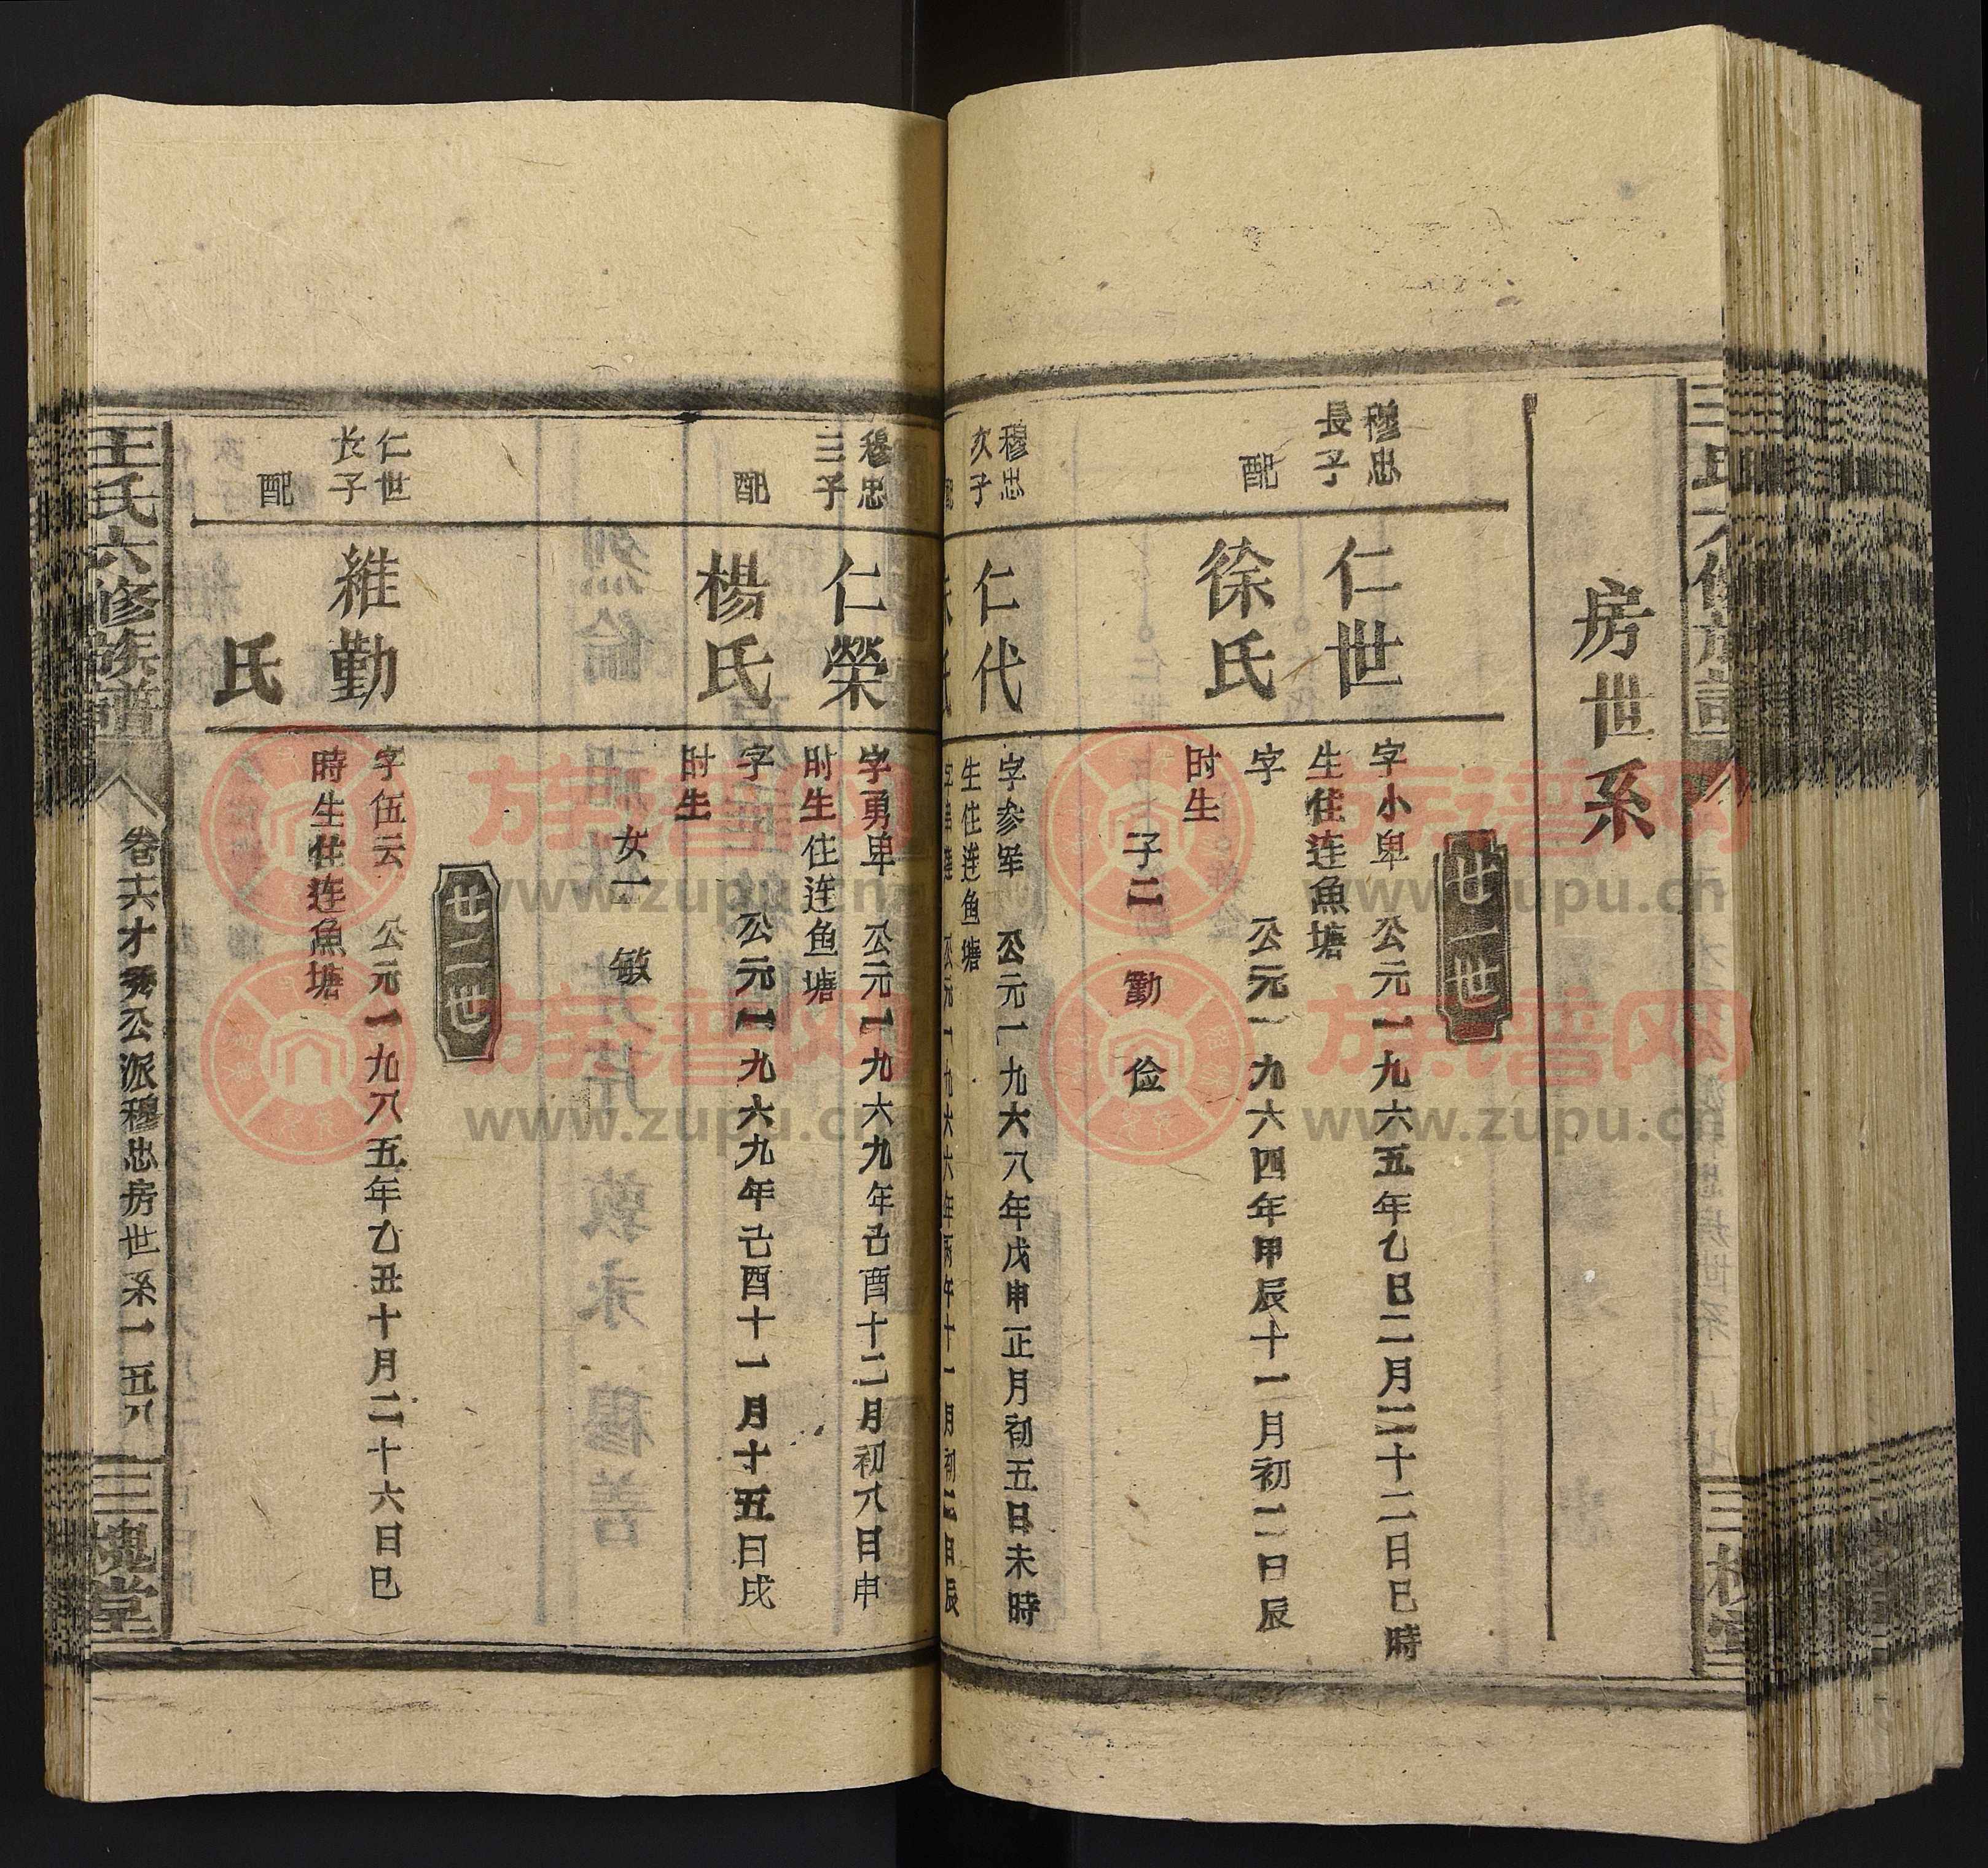 房世系
廿一世
穆忠
長子
仁世
字小卑 公元一九六五年乙巳二月二十二日巳時
生住连魚塘
配
徐氏
字 公元一九六四年甲辰十一月初二日辰
时生
子二 勤 俭
穆忠
次子
仁代
字参军 公元一九六八年戊申正月初五日未時
生住连鱼塘
公元一九六六年丙午十一月初二日辰
穆忠
三子
仁榮
字勇卑 公元一九六九年己酉十二月初八日申
时生住连鱼塘
配
楊氏
字 公元一九六九年己酉十一月十五日戌
时生
女一 敏
廿二世
仁世
长子
維勤
字伍云 公元一九八五年乙丑十月二十六日巳
時生住连魚塘
配
氏
王氏六修族譜
卷十六才秀公派穆忠房世系一五八
三槐堂
族谱网
www.zupu.cn
族谱网
www.zupu.cn
族谱网
www.zupu.cn
族谱网
www.zupu.cn